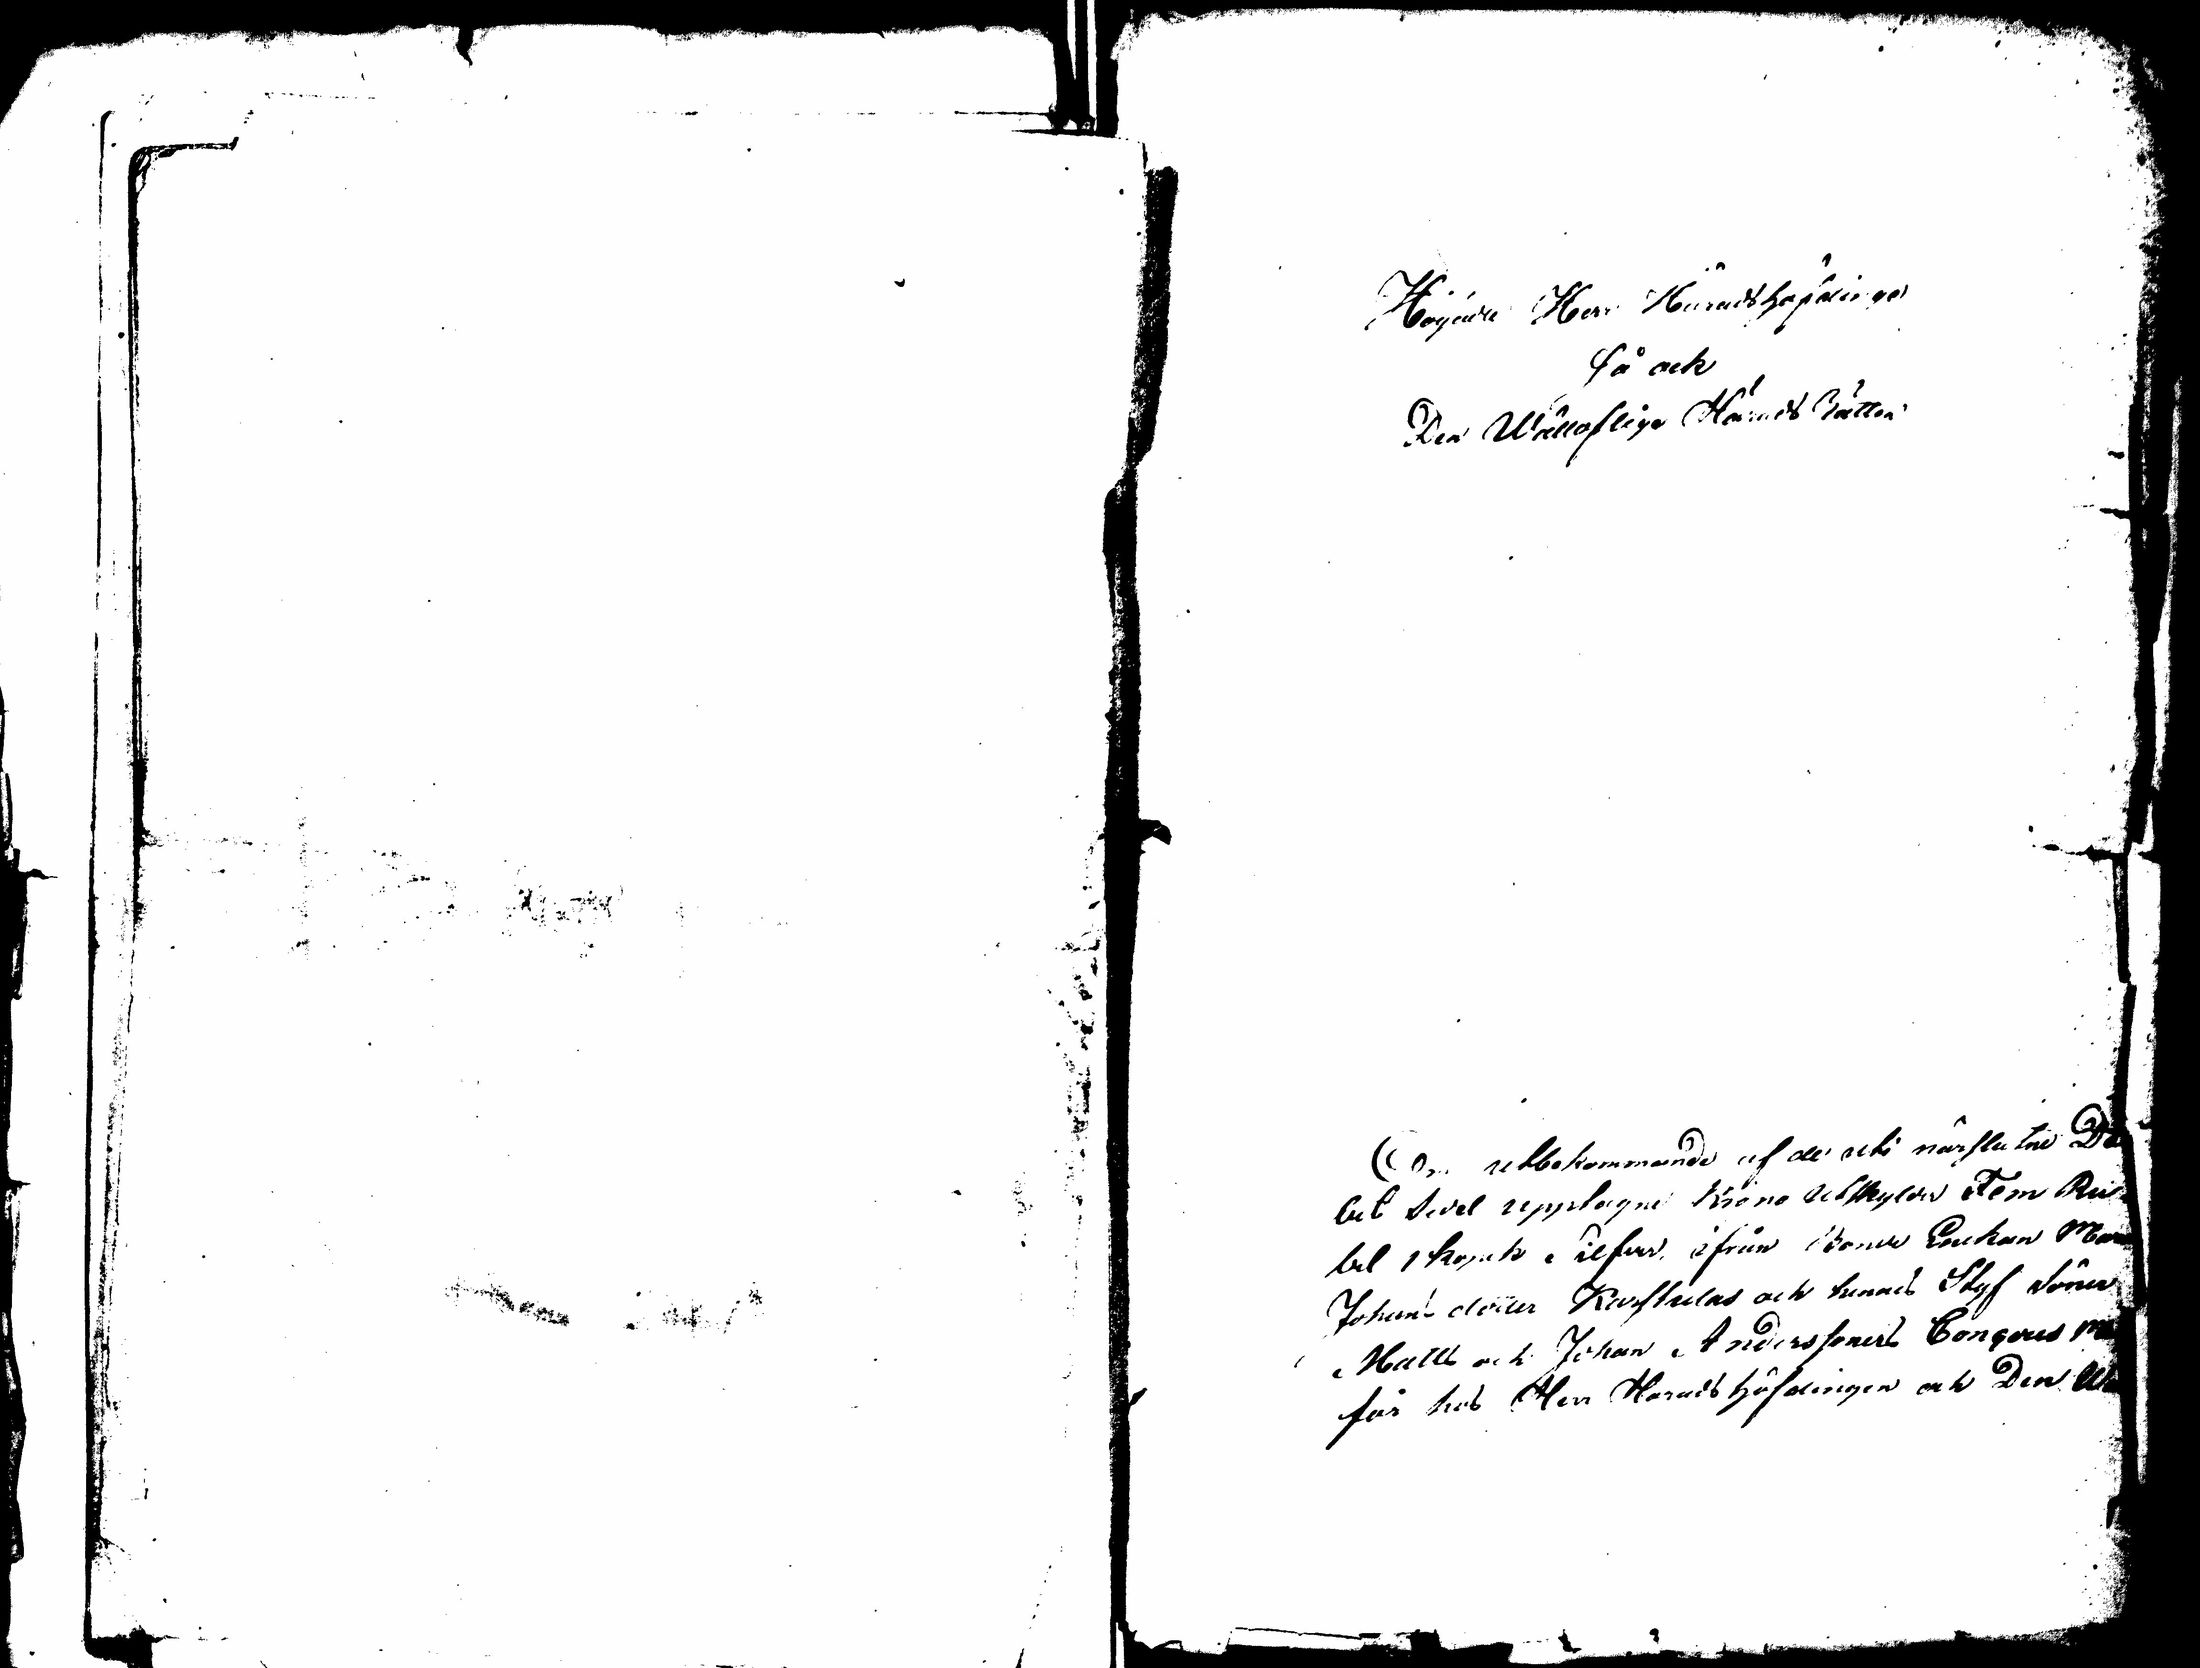 Högädle Herr Häradshöfdinge
så och
Den Wälloflige Härads Rätten
Om utbekommande af de uti närslutne De
bet Sedel upptagne Krono Utskylder Fem Ru
bel 1 kopek Silfver, ifrån Bonde Enkan Mar
Johans dotter Karstulas och hennes Styf Söner
Matts och Johan Anderssoners Concurs
får hos Herr Häradshöfdingen och Den